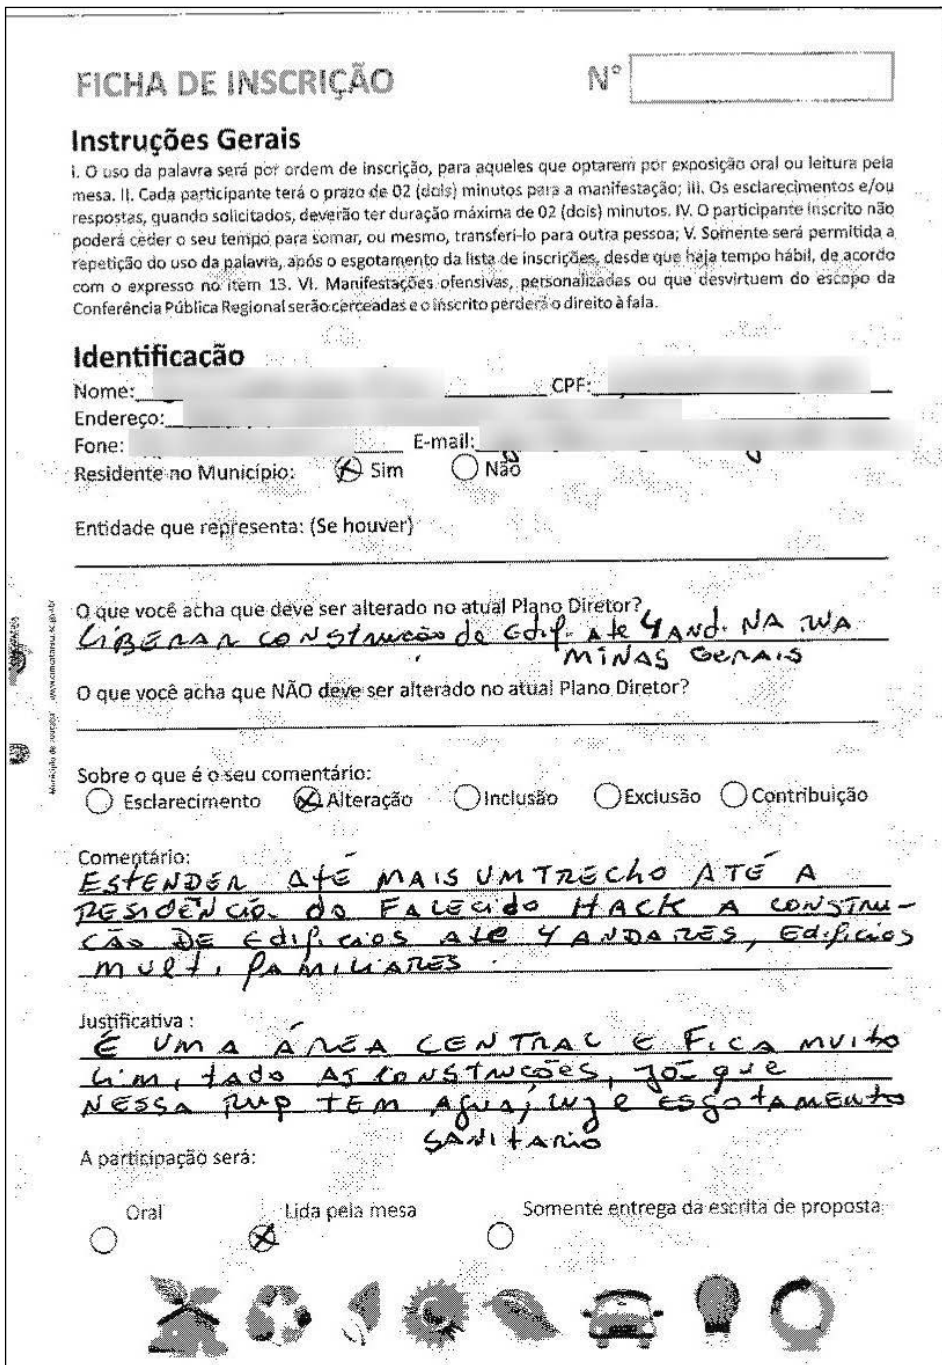 FICHA DE INSCRIÇÃO
N°
Instruções Gerais
I. O uso da palavra será por ordem de inscrição, para aqueles que optarem por exposição oral ou leitura pela
mesa. II. Cada participante terá o prazo de 02 (dois) minutos para a manifestação; III. Os esclarecimentos e/ou
respostas, quando solicitados, deverão ter duração máxima de 02 (dois) minutos. IV. O participante inscrito não
poderá ceder o seu tempo para somar, ou mesmo, transferi-lo para outra pessoa; V. Somente será permitida a
repetição do uso da palavra, após o esgotamento da lista de inscrições, desde que haja tempo hábil, de acordo
com o expresso no item 13. VI. Manifestações ofensivas, personalizadas ou que desvirtuem do escopo da
Conferência Pública Regional serão cerceadas e o inscrito perderá o direito à fala.
Identificação
Nome: CPF:
Endereço:
Fone: E-mail:
Residente no Município: Sim Não
Entidade que representa: (Se houver)
O que você acha que deve ser alterado no atual Plano Diretor?
LIBERAR CONSTRUÇÃO de Edif. Até 4 And. NA RUA
MINAS GERAIS
O que você acha que NÃO deve ser alterado no atual Plano Diretor?
Sobre o que é o seu comentário:
Esclarecimento Alteração Inclusão Exclusão Contribuição
Comentário:
ESTENDER ATÉ MAIS UM TRECHO ATÉ A
RESIDÊNCIA do FALECIDO HACK A CONSTRU-
ÇÃO DE Edifícios Até 4 ANDARES, Edifícios
multi FAMILIARES.
Justificativa :
É UMA ÁREA CENTRAL E FICA MUITO
Limitado AS CONSTRUÇÕES, Já que
NESSA RUA TEM Água, luz e ESGOTAMENTO
SANITARIO
A participação será:
Oral Lida pela mesa Somente entrega da escrita de proposta